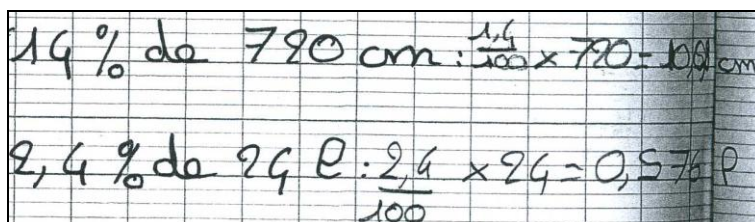 14 % de 720 cm : 1,4/100 × 720 = 10,01 cm
2,4 % de 24 l : 2,4/100 × 24 = 0,576 l